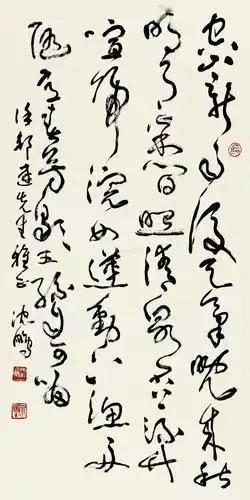 空山新雨後天氣晚來秋
明月松間照清泉石上流竹
喧歸浣女蓮動下漁舟
隨意春芳歇王孫自可留
徐邦達先生雅正 沈鵬